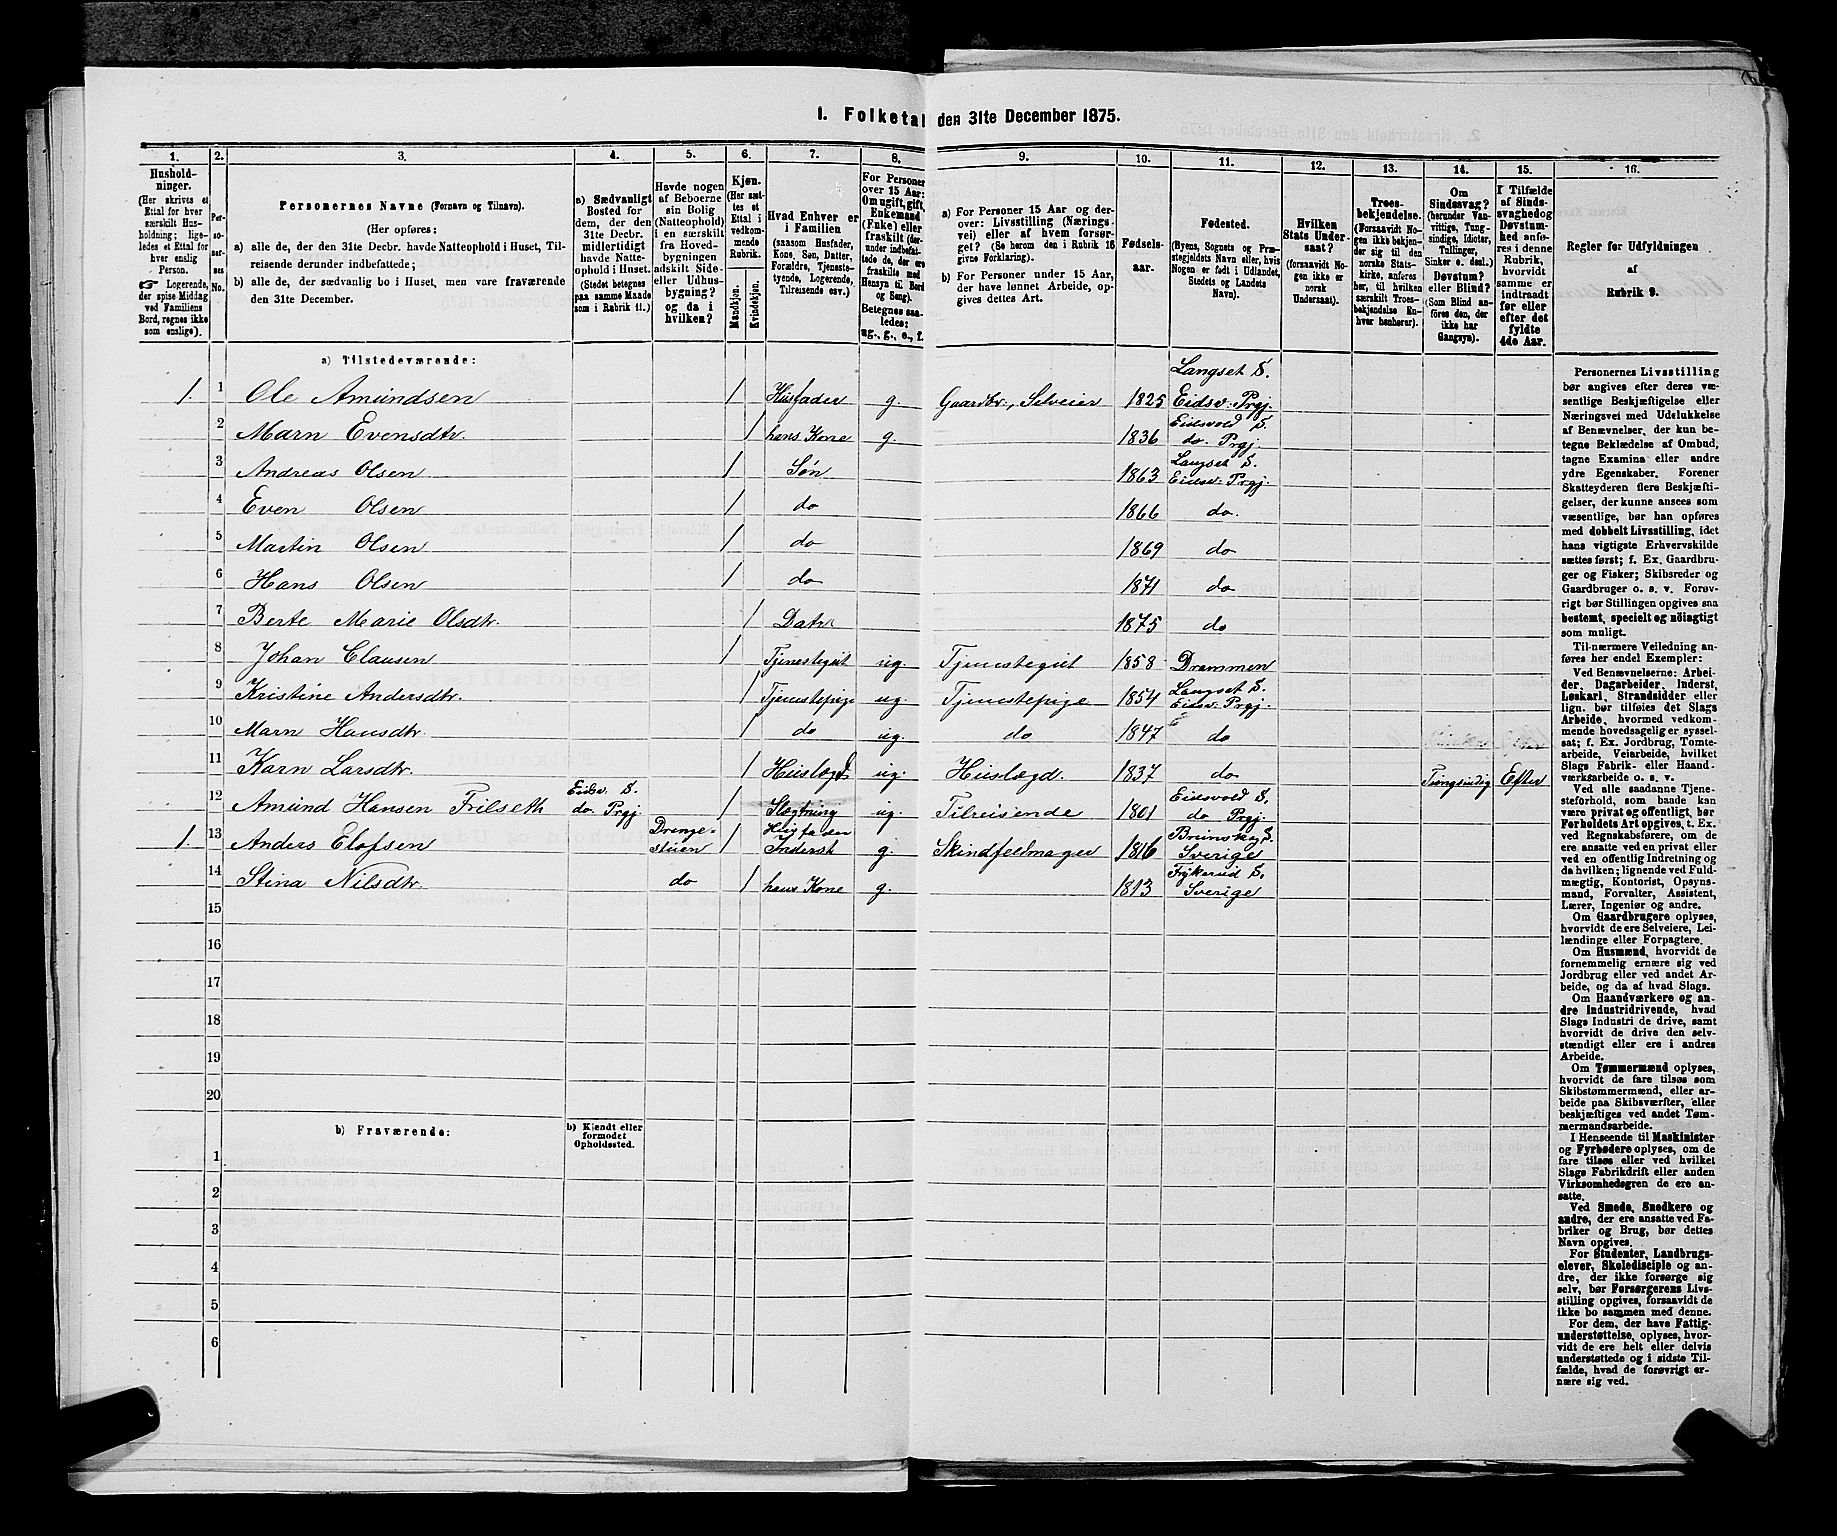 1. Folketal den 31te December 1875.
1.
2.
3.
4.
5.
6.
7.
8.
9.
10.
11.
12.
13.
14.
15.
16.
Hushold-
ninger.
(Her skrives et
Ettal for hver
særskilt Hus-
holdning; lige-
ledes et Ettal for
hver enslig
Person.
☞ Logerende,
der spise Middag
ved Familiens
Bord, regnes ikke
som enslige).
Per-
so-
ner-
nes
No.
Personernes Navne (Fornavn og Tilnavn).
(Her opføres:
a) alle de, der den 31te Decbr. havde Natteophold i Huset, Til-
reisende derunder indbefattede;
b) alle de, der sædvanlig bo i Huset, men vare fraværende
den 31te December.
a) Sædvanligt
Bosted for
dem, der den
31te Decbr.
midlertidigt
havde Natte-
ophold i Huset.
(Stedet betegnes
paa samme Maade
som i Rubrik 11.)
Havde nogen
af Beboerne
sin Bolig
(Natteophold)
i en særskilt
fra Hoved-
bygningen
adskilt Side-
eller Udhus-
bygning?
og da i
hvilken?
Kjøn.
(Her sæt-
tes et
Ettal i
vedkom-
mende
Rubrik.
Mandkjøn.
Kvindekjøn.
Hvad Enhver er
i Familien
(saasom Husfader,
Kone, Søn, Datter,
Forældre, Tjeneste-
tyende, Logerende,
Tilreisende osv.)
For Personer
over 15 Aar:
Om ugift, gift,
Enkemand
(Enke) eller
fraskilt (der-
under indbefat-
tede de, der ere
fraskilte med
Hensyn til Bord
og Seng).
Betegnes saa-
ledes:
ug., g., e., f.
a) For Personer 15 Aar og der-
over: Livsstilling (Nærings-
vei) eller af hvem forsør-
get? (Se herom den i Rubrik 16
givne Forklaring).
b) For Personer under 15 Aar,
der have lønnet Arbeide, op-
gives dettes Art.
Fødsels-
aar.
Fødested.
(Byens, Sognets og Præ-
stegjeldets Navn, eller, hvis
Nogen er født i Udlandet,
Stedets og Landets
Navn).
Hvilken
Stats Under-
saat?
(foraavidt No-
gen ikke er
norsk
Undersaat).
Troes-
bekjendelse.
(Forsaavidt No-
gen ikke bekjen-
der sig til den
norske Stats-
kirke, anføres
her, til hvilken
særskilt Troes-
bekjendelse En-
hver henhører).
Om
Sindssvag?
(herunder Van-
vittige, Tung-
sindige, Idioter,
Tullinger,
Sinker o. desl.)
Døvstum?
eller Blind?
(Som Blind an-
føres den, der
ikke har
Gangsyn).
I Tilfælde
af Sinds-
svaghed og
Døvstum-
hed anfø-
res i denne
Rubrik,
hvorvidt
samme er
indtraadt
før eller
efter det
fyldte
4de Aar.
Regler for Udfyldningen
af
Rubrik 9.
a) Tilstedeværende:
1. 1 Ole Amundsen 1 Husfader g. Gaardbr., Selveier 1825 Langset S. Eidsv. Prgj.
2 Marn Evensdtr. 1 hans Kone g. 1836 Eidsvold S. do. Prgj.
3 Andreas Olsen 1 Søn 1863 Langset S. Eidsv. Prgj.
4 Even Olsen 1 do 1866 do.
5 Martin Olsen 1 do 1869 do
6 Hans Olsen 1 do 1871 do
7 Berte Marie Olsdtr. 1 Datr. 1875 do
8 Johan Clausen 1 Tjenestegut ug. Tjenestegut 1858 Drammen
9 Kristine Andersdtr. 1 Tjenestepige ug. Tjenestepige 1854 Langset S. Eidsv. Prgj.
10 Marn Hansdtr. 1 do ug. do 1847 do
11 Karn Larsdtr. 1 Huslægd ug. Huslægd. 1837 do Tungsindig Efter
12 Amund Hansen Frilseth Eidsv. S. do. Prgj. 1 Slægtning ug. Tilreisende 1801 Eidsvold S. do Prgj.
1. 13 Anders Elofsen Drenge- stuen 1 Husfader Inderst g. Skindfeldmager 1816 Brunsky S. Sverige
14 Stina Nilsdtr. do 1 hans Kone g. 1813 Frykerud S. Sverige
15
16
17
18
19
20
b) Fraværende:
b) Kjendt eller
formodet
Opholdssted.
1
2
3
4
5
6
Personernes Livsstilling
bør angives efter deres væ-
sentlige Beskjæftigelse eller
Næringsvei med Udelukkelse
af Benævnelser, der kun be-
tegne Beklædelse af Ombud,
tagne Examina eller andre
ydre Egenskaber. Forener
Skatteyderen flere Beskjæfti-
gelser, der kunne ansees som
væsentlige, bør han opføres
med dobbelt Livsstilling, idet
hans vigtigste Erhvervskilde
sættes først; f. Ex. Gaardbru-
ger og Fisker; Skibsreder og
Gaardbruger o. s. v. Forøv-
rigt bør Stillingen opgives saa
bestemt, specielt og nöiagtigt
som muligt.
Til nærmere Veiledning an-
føres her endel Exempler:
Ved Benævnelserne: Arbei-
der, Dagarbeider, Inderst,
Løskarl, Strandsidder eller
lign. bør tilføies det Slags
Arbeide, hvormed vedkom-
mende hovedsagelig er syssel-
sat; f. Ex. Jordbrug, Tomte-
arbeide, Veiarbeide, hvilket
Slags Fabrik- eller Haand-
værksarbeide o. s. v.
Ved alle saadanne Tjene-
steforhold, som baade kan
være privat og offentligt, bør
Forholdets Art opgives, t. Ex.
ved Regnskabsførere, om de
ere ansatte ved en privat eller
ved en offentlig Indretning og
da hvilken; lignende ved Fuld-
mægtig, Kontorist, Opsyns-
mand, Forvalter, Assistent,
Lærer, Ingeniør og andre.
Om Gaardbrugere oplyses,
hvorvidt de ere Selveiere, Lei-
lændinge eller Forpagtere.
Om Husmænd, hvorvidt de
fornemmelig ernære sig ved
Jordbrug eller ved andet Ar-
beide, og da af hvad Slags.
Om Haandværkere og an-
dre Industridrivende, hvad
Slags Industri de drive, samt
hvorvidt de drive den selv-
stændigt eller ere i andres
Arbeide.
Om Tømmermænd oplyses,
hvorvidt de fare tilsøs som
Skibstømmermænd, eller ar-
beide paa Skibsværfter, eller
beskjæftiges ved andet Tøm-
mermandsarbeide.
I Henseende til Maskinister
og Fyrbødere oplyses, om de
fare tilsøs eller ved hvilket
Slags Fabrikdrift eller anden
Virksomhedsgren de ere an-
satte.
Ved Smede, Snedkere og
andre, der ere ansatte ved Fa-
briker og Brug, bør dettes
Navn opgives.
For Studenter, Landbrugs-
elever, Skoledisciple og an-
dre, der ikke forsørge sig
selv, bør Forsørgerens Livs-
stilling opgives, forsaavidt de
ikke bo sammen med denne.
For dem, der have Fattig-
understøttelse, oplyses, hvor-
vidt de ere helt eller delvis
understøttede og i sidste Til-
fælde, hvad de forøvrigt er-
nære sig ved.